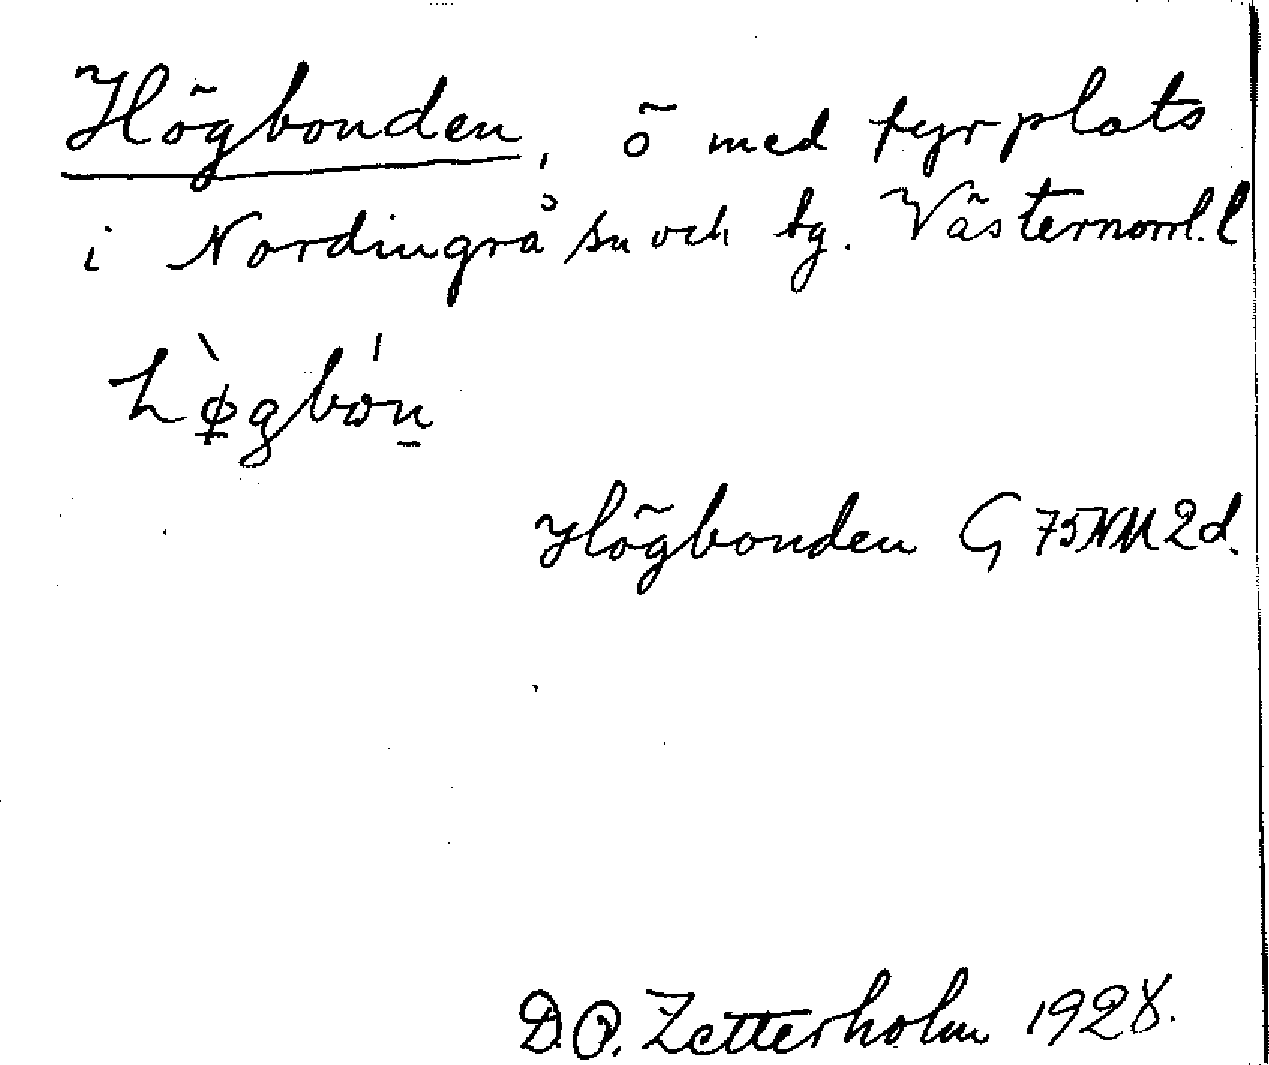 Högbonden, ö med fyrplats
i Nordingrå sn och tg. Västernorrl. l
hø̀gbón
Högbonden G 75NM2d.
D.O. Zetterholm 1928.